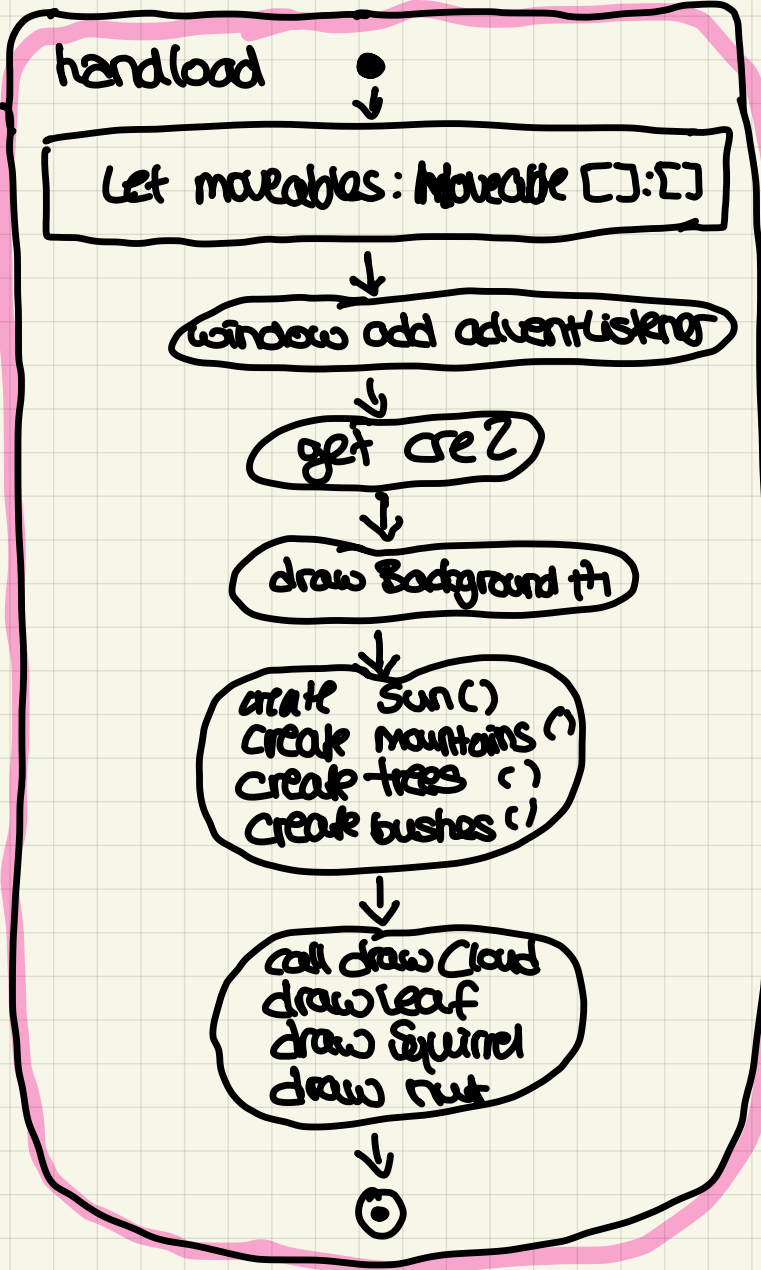 handload
Let moveables: Moveable []:[]
window add adventListener
get cre2
draw Background
create Sun()
create mountains ()
create trees ()
create bushes ()
call draw Cloud
draw Leaf
draw Squirrel
draw nut